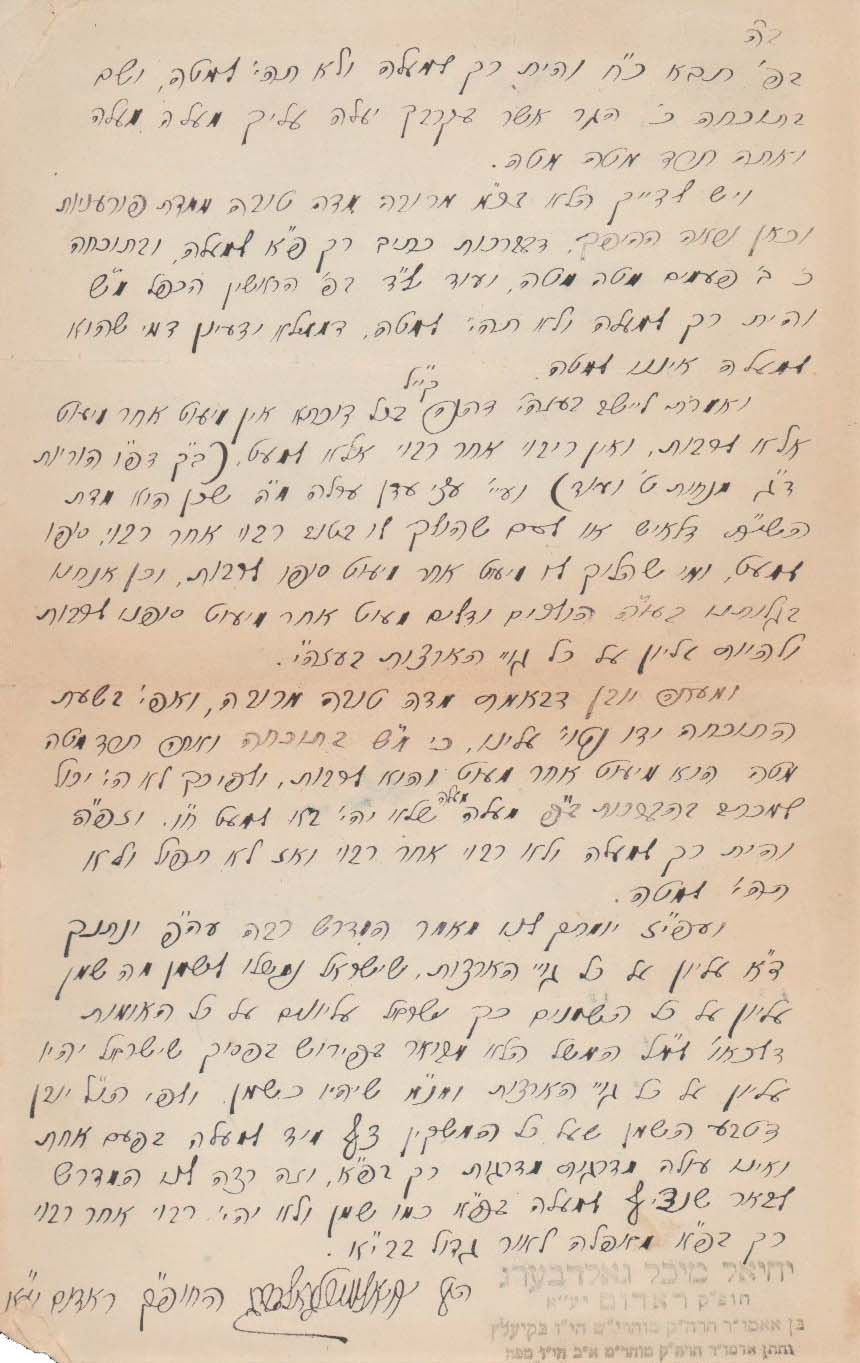 ב"ה
בפ' תבא כ"ח והיית רק למעלה ולא תהי' למטה, ושם
בתוכחה כ' הגר אשר בקרבך יעלה עליך מעלה מעלה
ואתה תרד מטה מטה.
ויש לדייק הלא בכ"מ מרובה מדה טובה ממדת פורעניות
וכאן נראה ההיפך, דבברכות כתיב רק פ"א למעלה, ובתוכחה
כ' ב' פעמים מטה מטה, ועוד צ"ד בפ' הראשין הכפל מ"ש
והיית רק למעלה ולא תהי' למטה, דממילא ידעינן דמי שהוא
למעלה איננו למטה.
ואמרתי ליישב בעזה"י דהנה קיי"ל בכל דוכתא אין מיעוט אחר מיעוט
אלא לרבות, ואין ריבוי אחר רבוי אלא למעט, (ב"ק דפ"ו הוריות
ד"ג מנחות ט' ועוד) ועיי' עצי עדן ערלה מ"ה שכן הוא מדת
השי"ת דלאיש או לעם שהולך לו בטוב רבוי אחר רבוי, סופו
למעט, ומי שהולך לו מיעוט אחר מיעוט סופו לרבות, וכן אנחנו
בגלותנו בעוה"ר הולכים ודלים מעוט אחר מיעוט סופנו לרבות
ולהיות עליון על כל גויי הארצות בעזה"י.
ומעתה יובן דבאמת מדה טובה מרובה, ואפי' בשעת
התוכחה ידו נטוי' עלינו, כי מ"ש בתוכחה ואתה תרד מטה
מטה הוא מיעוט אחר מעוט והוא לרבות, ולפיכך לא הי' יכול
למכתב בהברכות ב"פ מעלה מעלה שלא יהי' בא למעט ח"ו. וזפ"ה
והיית רק למעלה ולא רבוי אחר רבוי ואז לא תפול ולא
תהי' למטה.
ועפי"ז יומתק לנו מאמר המדרש רבה עה"פ ונתנך
ד"א עליון על כל גויי הארצות, שישראל נמשלו לשמן מה שמן
עליון על כל השמנים כך ישראל עליונים על כל האומות
דלכאו' למ"ל המשל הלא מבואר בפירוש בפסוק שישראל יהיו
עליון על כל גויי הארצות ומנ"מ שיהיו כשמן. ולפי הנ"ל יובן
דטבע השמן שעל כל המשקין צף מיד למעלה בפעם אחת
ואינו עולה מדרגות מדרגות רק בפ"א, וזה רצה לנו המדרש
לבאר שנציף למעלה בפ"א כמו שמן ולא יהי' רבוי אחר רבוי
רק בפ"א מאפלה לאור גדול בב"א.
הק' החופ"ק ראדום יע"א
יחיאל מיכל גאלדבערג
חופ"ק ראדום יע"א
בן אאמו"ר הרה"ק מוהרי"ש הי"ו בקיעלץ